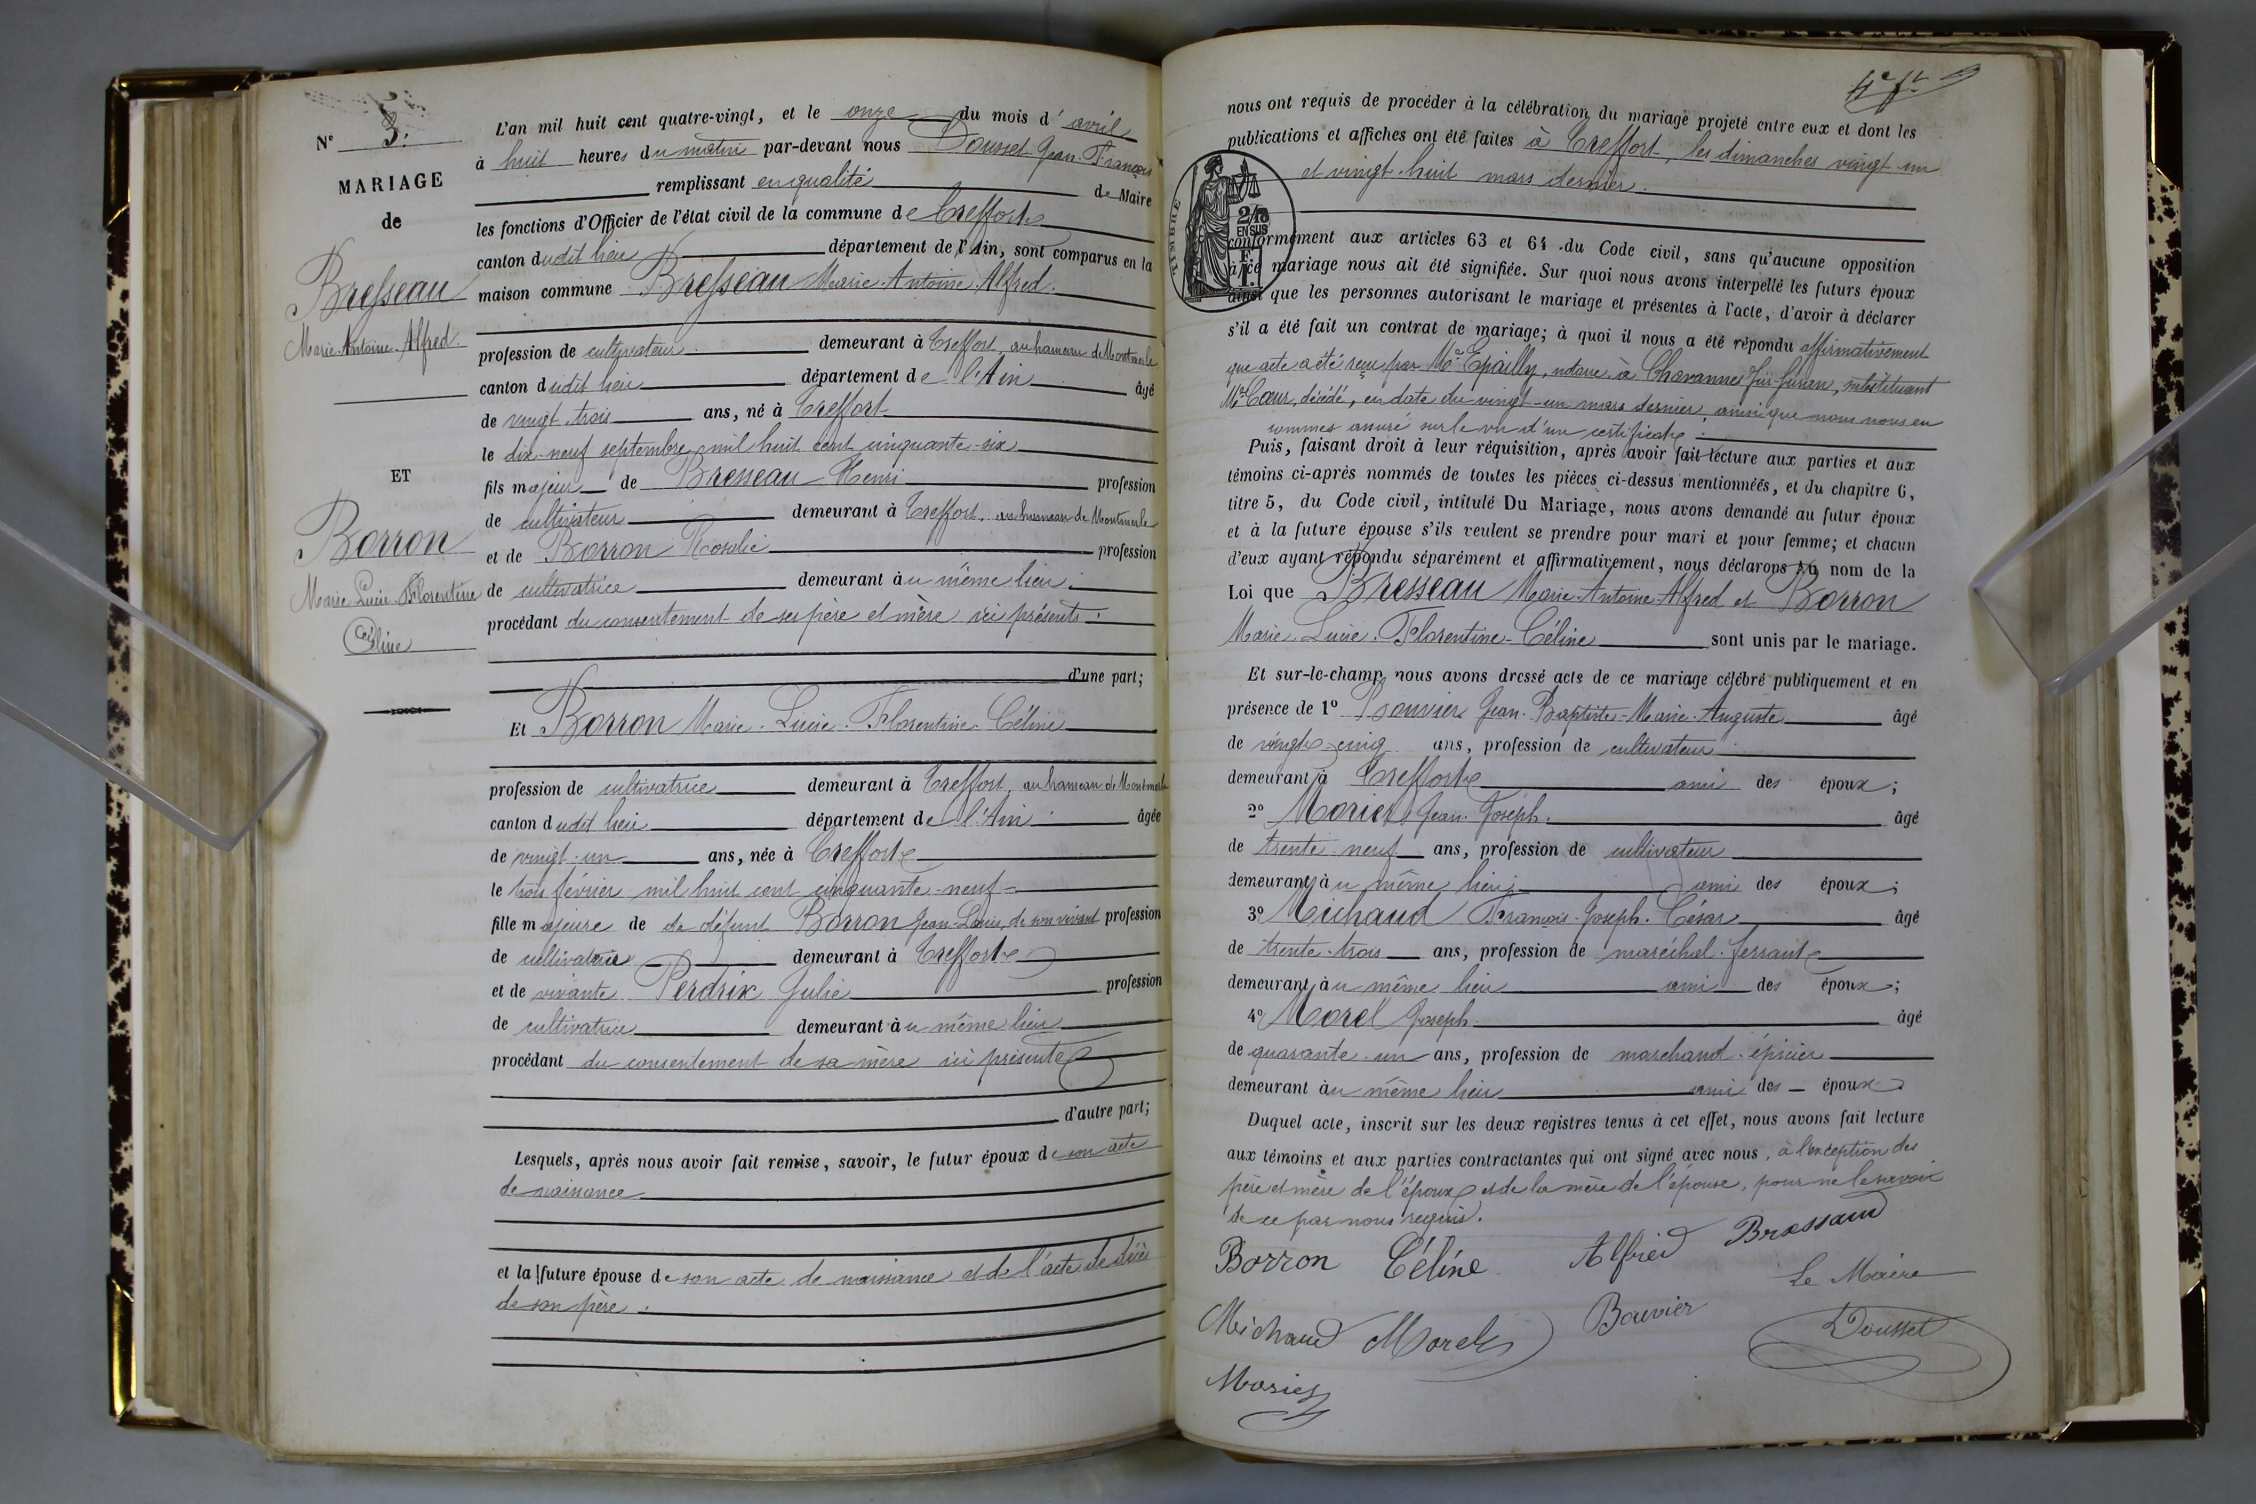 N° 3.
MARIAGE
de
Bresseau
Marie-Antoine-Alfred.
ET
Borron
Marie-Lucie-Florentine
Céline
L'an mil huit cent quatre-vingt, et le onze du mois d'avril
à huit heures du matin par-devant nous Dousset Jean-François
remplissant en qualité de Maire
les fonctions d'Officier de l'état civil de la commune de Treffort
canton dudit lieu département de l'Ain, sont comparus en la
maison commune Bresseau Marie-Antoine-Alfred.
profession de cultivateur demeurant à Treffort, au hameau de Montmerle
canton dudit lieu département de l'Ain âgé
de vingt-trois ans, né à Treffort
le dix-neuf septembre mil huit cent cinquante-six
fils majeur de Bresseau Henri profession
de cultivateur demeurant à Treffort, au hameau de Montmerle
et de Borron Rosalie profession
de cultivatrice demeurant au même lieu.
procédant du consentement de ses père et mère ici présents.
d'une part;
Et Borron Marie-Lucie-Florentine-Céline
profession de cultivatrice demeurant à Treffort, au hameau de Montmerle
canton dudit lieu département de l'Ain. âgée
de vingt-un ans, née à Treffort
le trois février mil huit cent cinquante-neuf
fille majeure de de défunt Borron Jean-Louis, de son vivant profession
de cultivateur demeurant à Treffort
et de vivante Perdrix Julie profession
de cultivatrice demeurant au même lieu
procédant du consentement de sa mère ici présente
d'autre part;
Lesquels, après nous avoir fait remise, savoir, le futur époux de son acte
de naissance
et la future épouse de son acte de naissance et de l'acte de décès
de son père.
4e ft
nous ont requis de procéder à la célébration du mariage projeté entre eux et dont les
publications et affiches ont été faites à Treffort, les dimanches vingt-un
et vingt-huit mars dernier.
TIMBRE
2/10
EN SUS
F.
1.
conformément aux articles 63 et 64 du Code civil, sans qu'aucune opposition
à ce mariage nous ait été signifiée. Sur quoi nous avons interpellé les futurs époux
ainsi que les personnes autorisant le mariage et présentes à l'acte, d'avoir à déclarer
s'il a été fait un contrat de mariage; à quoi il nous a été répondu affirmativement
que acte a été reçu par Me Epailly, notaire à Chavannes-sur-Suran, substituant
Me Cœur, décédé, en date du vingt-un mars dernier, ainsi que nous nous en
sommes assuré sur le vu d'un certificat.
Puis, faisant droit à leur réquisition, après avoir fait lecture aux parties et aux
témoins ci-après nommés de toutes les pièces ci-dessus mentionnéés, et du chapitre 6,
titre 5, du Code civil, intitulé Du Mariage, nous avons demandé au futur époux
et à la future épouse s'ils veulent se prendre pour mari et pour femme; et chacun
d'eux ayant répondu séparément et affirmativement, nous déclarons au nom de la
Loi que Bresseau Marie-Antoine-Alfred et Borron
Marie-Lucie-Florentine-Céline sont unis par le mariage.
Et sur-le-champ nous avons dressé acte de ce mariage célébré publiquement et en
présence de 1° Bouvier Jean-Baptiste-Marie-Auguste âgé
de vingt-cinq ans, profession de cultivateur
demeurant à Treffort ami des époux;
2° Morier Jean-Joseph. âgé
de trente-neuf ans, profession de cultivateur
demeurant au même lieu; ami des époux;
3° Michaud François-Joseph-César âgé
de trente-trois ans, profession de maréchal-ferrant
demeurant au même lieu ami des époux;
4° Morel Joseph. âgé
de quarante-un ans, profession de marchand-épicier
demeurant au même lieu ami des époux
Duquel acte, inscrit sur les deux registres tenus à cet effet, nous avons fait lecture
aux témoins et aux parties contractantes qui ont signé avec nous, à l'exception des
père et mère de l'époux et de la mère de l'épouse, pour ne le savoir
de ce par nous requis.
Borron Céline Alfred Brassaud
Le Maire
Michaud Morel Bouvier Dousset
Morier